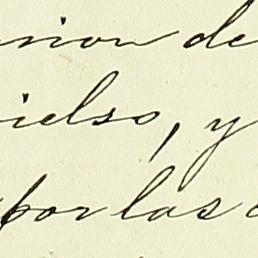 nion de
ielso, y
por las